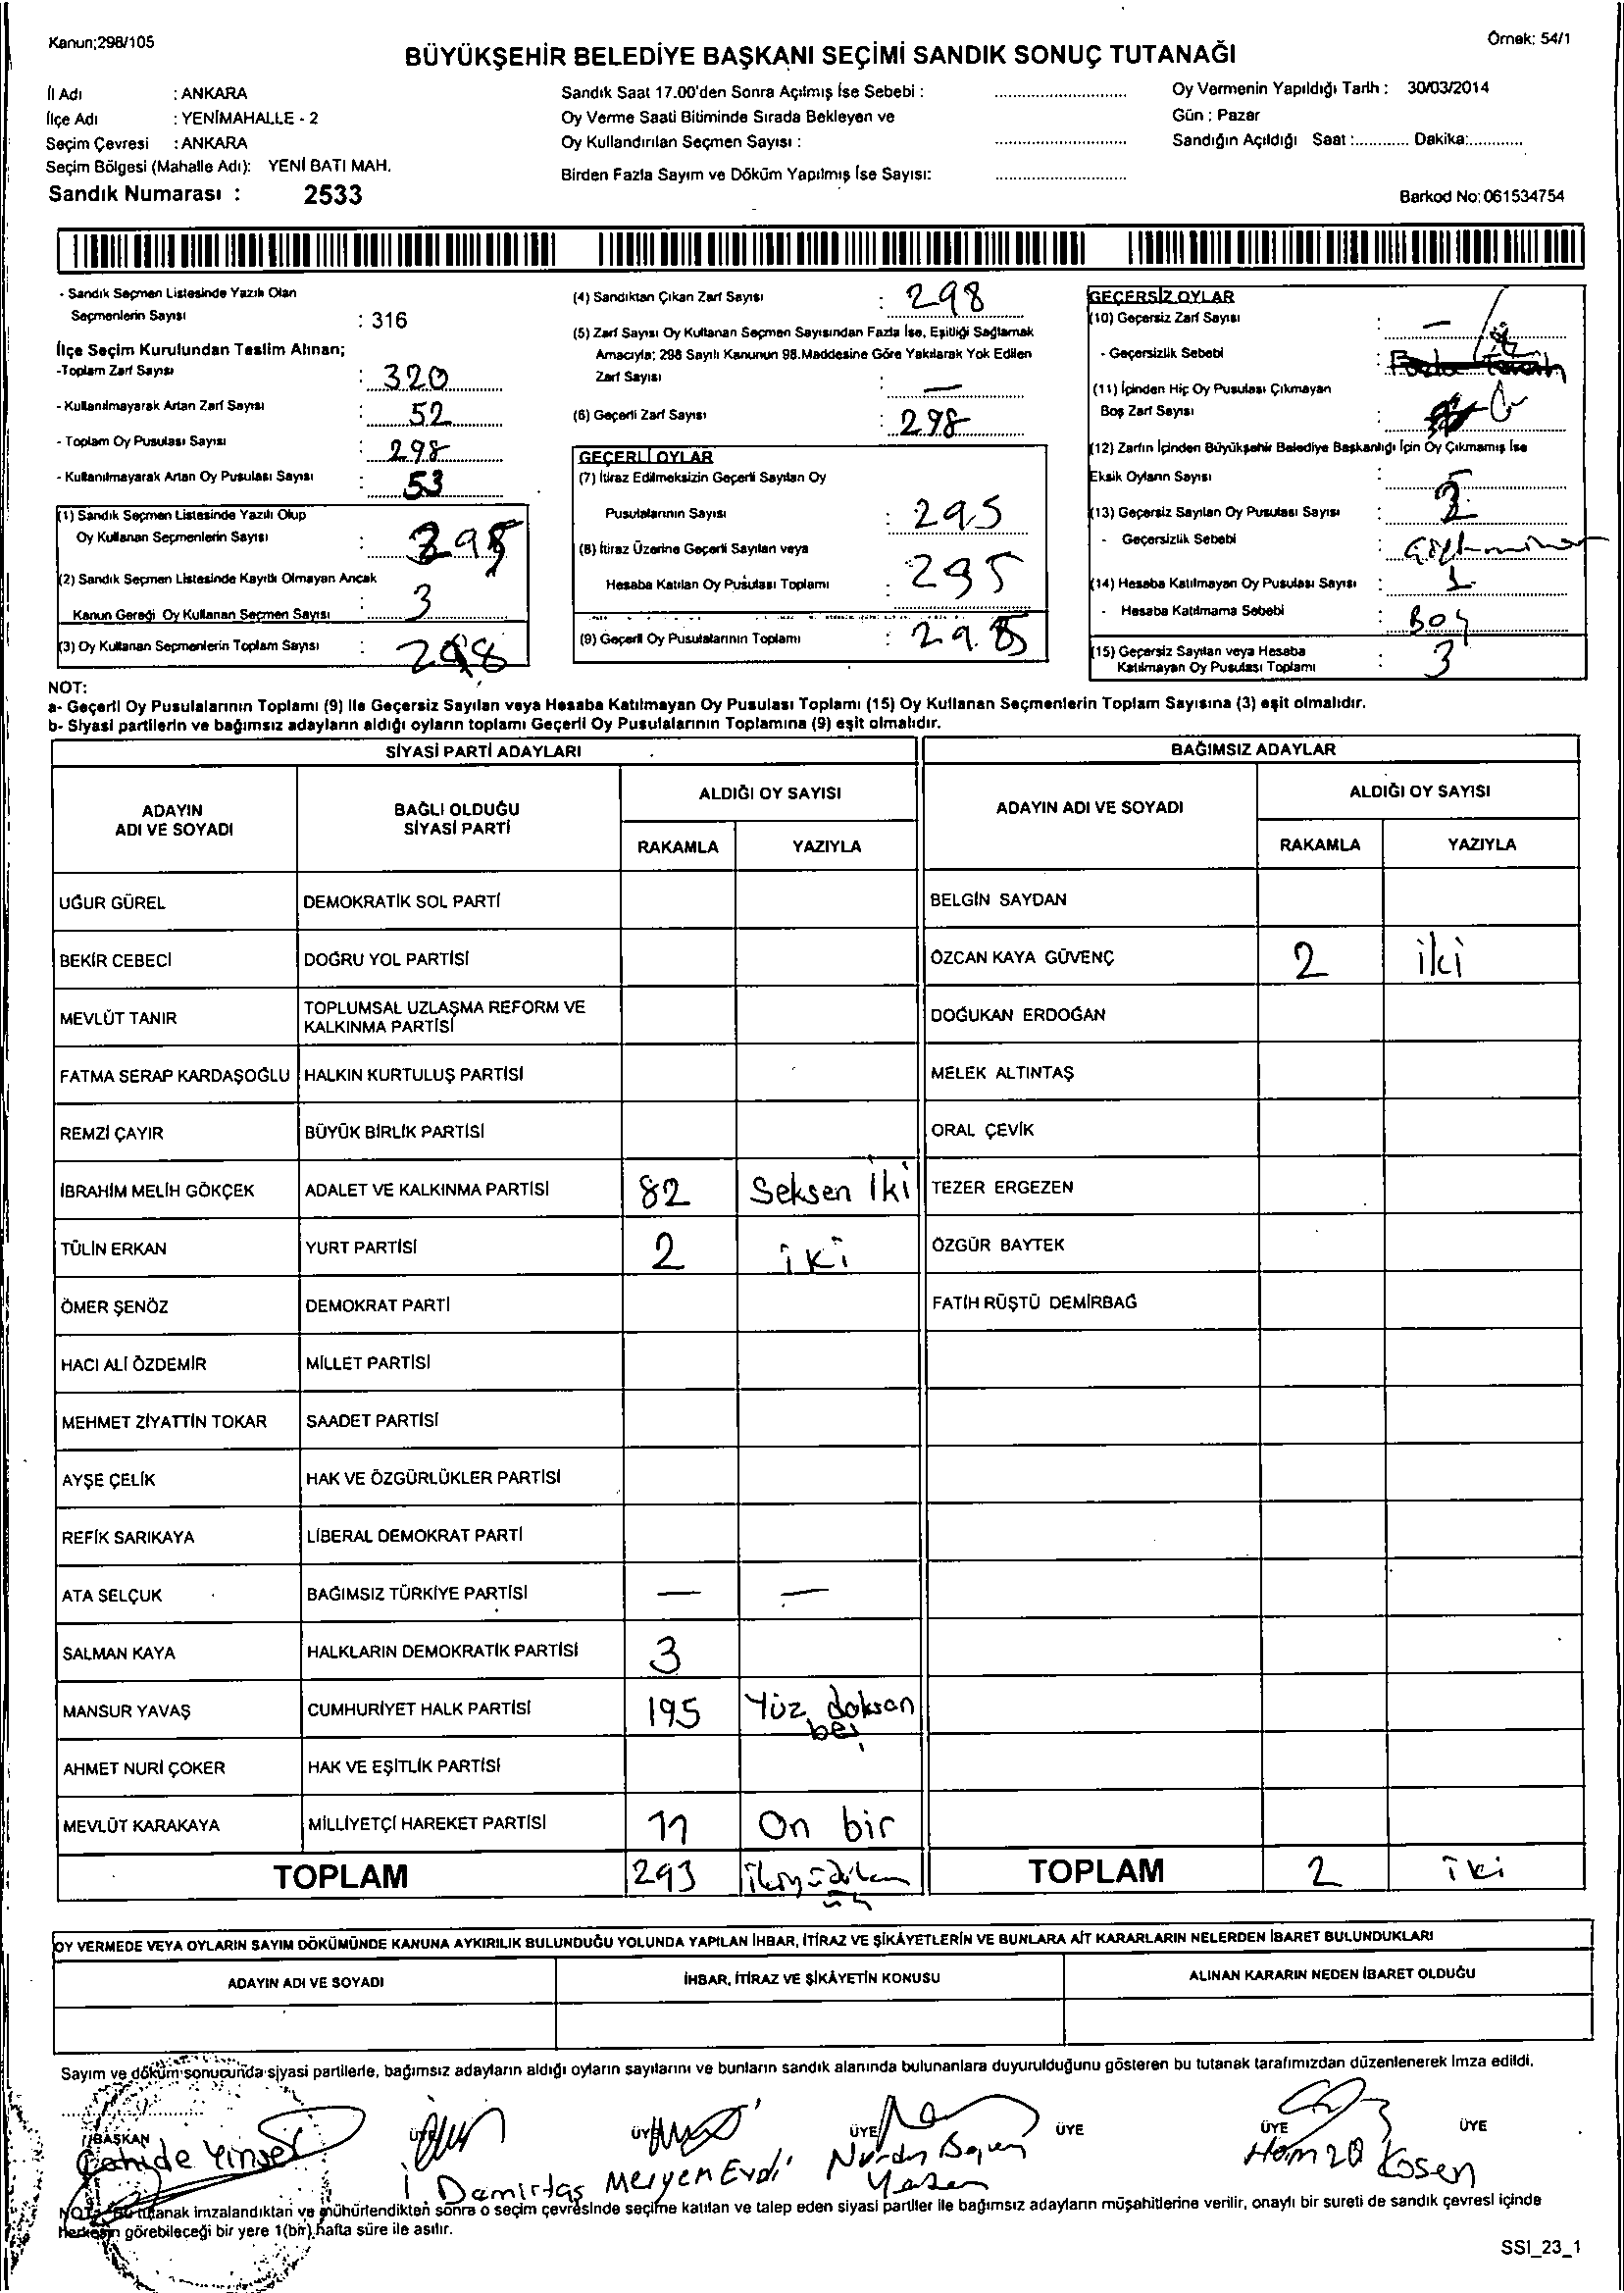 Kanun;298/105
Örnek: 54/1
BÜYÜKŞEHİR BELEDİYE BAŞKANI SEÇİMİ SANDIK SONUÇ TUTANAĞI
İl Adı : ANKARA
İlçe Adı : YENİMAHALLE - 2
Seçim Çevresi : ANKARA
Seçim Bölgesi (Mahalle Adı): YENİ BATI MAH.
Sandık Numarası : 2533
Sandık Saat 17.00'den Sonra Açılmış İse Sebebi :
Oy Verme Saati Bitiminde Sırada Bekleyen ve
Oy Kullandırılan Seçmen Sayısı :
Birden Fazla Sayım ve Döküm Yapılmış İse Sayısı:
Oy Vermenin Yapıldığı Tarih : 30/03/2014
Gün : Pazar
Sandığın Açıldığı Saat :............ Dakika:............
Barkod No: 061534754
- Sandık Seçmen Listesinde Yazılı Olan
Seçmenlerin Sayısı : 316
İlçe Seçim Kurulundan Teslim Alınan;
-Toplam Zarf Sayısı : 320
- Kullanılmayarak Artan Zarf Sayısı : 52
- Toplam Oy Pusulası Sayısı : 298
- Kullanılmayarak Artan Oy Pusulası Sayısı : 53
(1) Sandık Seçmen Listesinde Yazılı Olup
Oy Kullanan Seçmenlerin Sayısı :
(2) Sandık Seçmen Listesinde Kayıtlı Olmayan Ancak
Kanun Gereği Oy Kullanan Seçmen Sayısı : 3
(3) Oy Kullanan Seçmenlerin Toplam Sayısı : 298
(4) Sandıktan Çıkan Zarf Sayısı : 298
(5) Zarf Sayısı Oy Kullanan Seçmen Sayısından Fazla İse, Eşitliği Sağlamak
Amacıyla; 298 Sayılı Kanunun 98.Maddesine Göre Yakılarak Yok Edilen
Zarf Sayısı : —
(6) Geçerli Zarf Sayısı : 298
GEÇERLİ OYLAR
(7) İtiraz Edilmeksizin Geçerli Sayılan Oy
Pusulalarının Sayısı : 295
(8) İtiraz Üzerine Geçerli Sayılan veya
Hesaba Katılan Oy Pusulası Toplamı : 295
(9) Geçerli Oy Pusulalarının Toplamı : 295
GEÇERSİZ OYLAR
(10) Geçersiz Zarf Sayısı : —
- Geçersizlik Sebebi :
(11) İçinden Hiç Oy Pusulası Çıkmayan
Boş Zarf Sayısı :
(12) Zarfın İçinden Büyükşehir Belediye Başkanlığı İçin Oy Çıkmamış İse
Eksik Oyların Sayısı :
(13) Geçersiz Sayılan Oy Pusulası Sayısı : 2
- Geçersizlik Sebebi :
(14) Hesaba Katılmayan Oy Pusulası Sayısı : 1
- Hesaba Katılmama Sebebi : Boş
(15) Geçersiz Sayılan veya Hesaba
Katılmayan Oy Pusulası Toplamı : 3
NOT:
a- Geçerli Oy Pusulalarının Toplamı (9) ile Geçersiz Sayılan veya Hesaba Katılmayan Oy Pusulası Toplamı (15) Oy Kullanan Seçmenlerin Toplam Sayısına (3) eşit olmalıdır.
b- Siyasi partilerin ve bağımsız adayların aldığı oyların toplamı Geçerli Oy Pusulalarının Toplamına (9) eşit olmalıdır.
SİYASİ PARTİ ADAYLARI
BAĞIMSIZ ADAYLAR
ADAYIN ADI VE SOYADI
BAĞLI OLDUĞU SİYASİ PARTİ
ALDIĞI OY SAYISI
RAKAMLA YAZIYLA
ADAYIN ADI VE SOYADI
ALDIĞI OY SAYISI
RAKAMLA YAZIYLA
UĞUR GÜREL DEMOKRATİK SOL PARTİ BELGİN SAYDAN
BEKİR CEBECİ DOĞRU YOL PARTİSİ ÖZCAN KAYA GÜVENÇ 2 iki
MEVLÜT TANIR TOPLUMSAL UZLAŞMA REFORM VE KALKINMA PARTİSİ DOĞUKAN ERDOĞAN
FATMA SERAP KARDAŞOĞLU HALKIN KURTULUŞ PARTİSİ MELEK ALTINTAŞ
REMZİ ÇAYIR BÜYÜK BİRLİK PARTİSİ ORAL ÇEVİK
İBRAHİM MELİH GÖKÇEK ADALET VE KALKINMA PARTİSİ 82 Seksen iki TEZER ERGEZEN
TÜLİN ERKAN YURT PARTİSİ 2 iki ÖZGÜR BAYTEK
ÖMER ŞENÖZ DEMOKRAT PARTİ FATİH RÜŞTÜ DEMİRBAĞ
HACI ALİ ÖZDEMİR MİLLET PARTİSİ
MEHMET ZİYATTİN TOKAR SAADET PARTİSİ
AYŞE ÇELİK HAK VE ÖZGÜRLÜKLER PARTİSİ
REFİK SARIKAYA LİBERAL DEMOKRAT PARTİ
ATA SELÇUK BAĞIMSIZ TÜRKİYE PARTİSİ — —
SALMAN KAYA HALKLARIN DEMOKRATİK PARTİSİ 3
MANSUR YAVAŞ CUMHURİYET HALK PARTİSİ 195 Yüz doksan beş
AHMET NURİ ÇOKER HAK VE EŞİTLİK PARTİSİ
MEVLÜT KARAKAYA MİLLİYETÇİ HAREKET PARTİSİ 11 On bir
TOPLAM 293 TOPLAM 2 iki
OY VERMEDE VEYA OYLARIN SAYIM DÖKÜMÜNDE KANUNA AYKIRILIK BULUNDUĞU YOLUNDA YAPILAN İHBAR, İTİRAZ VE ŞİKÂYETLERİN VE BUNLARA AİT KARARLARIN NELERDEN İBARET BULUNDUKLARI
ADAYIN ADI VE SOYADI İHBAR, İTİRAZ VE ŞİKÂYETİN KONUSU ALINAN KARARIN NEDEN İBARET OLDUĞU
Sayım ve döküm sonucunda siyasi partilerle, bağımsız adayların aldığı oyların sayılarını ve bunların sandık alanında bulunanlara duyurulduğunu gösteren bu tutanak tarafımızdan düzenlenerek imza edildi.
BAŞKAN ÜYE ÜYE ÜYE ÜYE ÜYE ÜYE
İ Damirtaş Meryem Evdi Hamza Kosen
NOT: Bu tutanak imzalandıktan ve mühürlendikten sonra o seçim çevresinde seçime katılan ve talep eden siyasi partiler ile bağımsız adayların müşahitlerine verilir, onaylı bir sureti de sandık çevresi içinde
herkesin görebileceği bir yere 1(bir) hafta süre ile asılır.
SSI_23_1